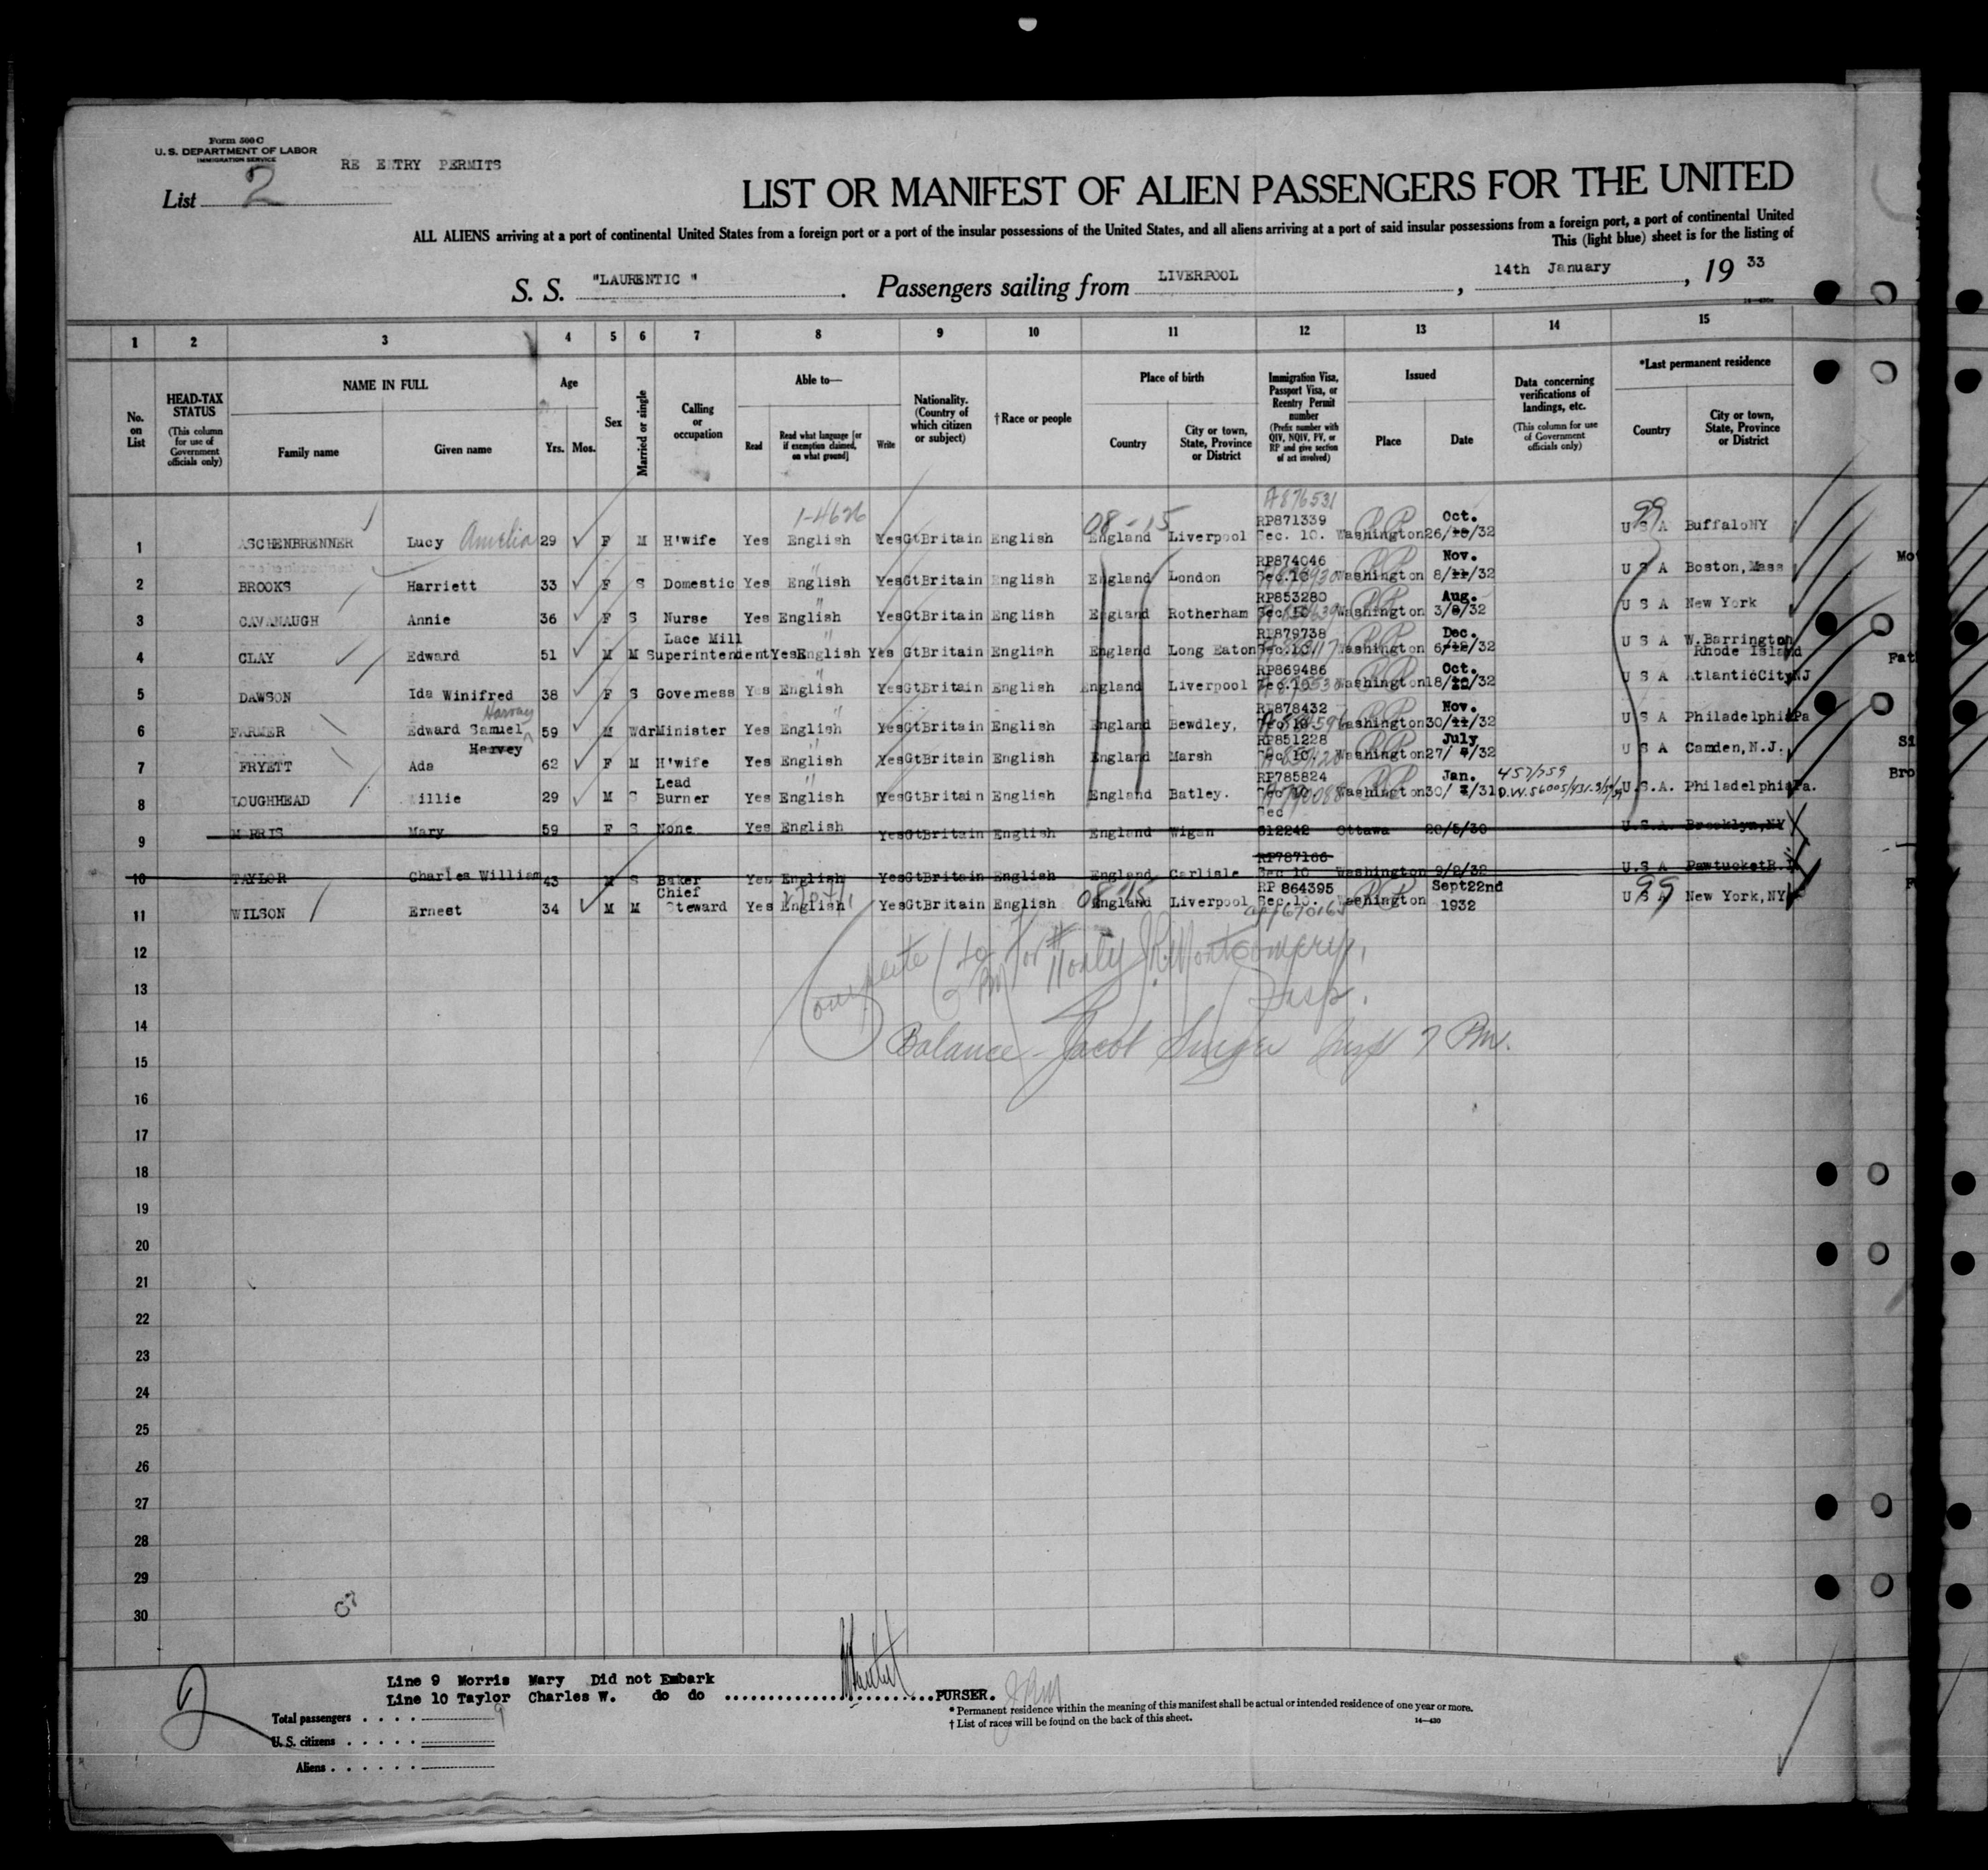 Form 500 C
U. S. DEPARTMENT OF LABOR
IMMIGRATION SERVICE
RE E TRY PERMITS
List 2
LIST OR MANIFEST OF ALIEN PASSENGERS FOR THE UNITED
ALL ALIENS arriving at a port of continental United States from a foreign port or a port of the insular possessions of the United States, and all aliens arriving at a port of said insular possessions from a foreign port, a port of continental United
This (light blue) sheet is for the listing of
S. S. "LAURENTIC " . Passengers sailing from LIVERPOOL , 14th January , 19 33
1 2 3 4 5 6 7 8 9 10 11 12 13 14 15
No. on List
HEAD-TAX STATUS (This column for use of Government officials only)
NAME IN FULL Family name Given name
Age Yrs. Mos.
Sex
Married or single
Calling or occupation
Able to— Read Read what language [or if exemption claimed, on what ground] Write
Nationality. (Country of which citizen or subject)
†Race or people
Place of birth Country City or town, State, Province or District
Immigration Visa, Passport Visa, or Reentry Permit number (Prefix number with QIV, NQIV, PV, or RP and give section of act involved)
Issued Place Date
Data concerning verifications of landings, etc. (This column for use of Government officials only)
*Last permanent residence Country City or town, State, Province or District
1-4626 08-15 A876531 99
1 ASCHENBRENNER Lucy Amelia 29 F M H'wife Yes English Yes GtBritain English England Liverpool RP871339 Sec. 10. Washington Oct. 26/10/32 U S A Buffalo NY
2 BROOKS Harriett 33 F S Domestic Yes English Yes GtBritain English England London RP874046 Sec.10 Washington Nov. 8/11/32 U S A Boston, Mass
3 CAVANAUGH Annie 36 F S Nurse Yes English Yes GtBritain English England Rotherham RP853280 Sec.10 Washington Aug. 3/8/32 U S A New York
4 CLAY Edward 51 M M Lace Mill Superintendent Yes English Yes GtBritain English England Long Eaton RP879738 Sec.10 Washington Dec. 6/12/32 U S A W. Barrington Rhode Island
5 DAWSON Ida Winifred 38 F S Governess Yes English Yes GtBritain English England Liverpool RP869486 Sec.10 Washington Oct. 18/10/32 U S A AtlanticCity NJ
6 FARMER Edward Samuel Harvey 59 M Wdr Minister Yes English Yes GtBritain English England Bewdley, RP878432 Sec 10. Washington Nov. 30/11/32 U S A Philadelphia Pa
Harvey
7 FRYETT Ada 62 F M H'wife Yes English Yes GtBritain English England Marsh RP851228 Sec 10. Washington July 27/ 7/32 U S A Camden, N.J.
8 LOUGHHEAD Willie 29 M S Lead Burner Yes English Yes GtBritain English England Batley. RP785824 Sec 10 Washington Jan. 30/ 1/31 457/759 U.S.A. Philadelphia Pa.
9 MORRIS Mary 59 F S None Yes English Yes GtBritain English England Wigan Sec 612242 Ottawa 20/5/30 U.S.A. Brooklyn, NY
10 TAYLOR Charles William 43 M S Baker Yes English Yes GtBritain English England Carlisle RP787166 Sec 10 Washington 9/2/32 U.S A Pawtucket R.I
11 WILSON Ernest 34 M M Chief Steward Yes English Yes GtBritain English England Liverpool RP 864395 Sec.10. Washington Sept 22nd 1932 U S A New York, NY
12
Complete for #11 only J.R. Montgomery,
13
Insp.
14
Balance - Jacob Singer Insp 7 Pm.
15
16
17
18
19
20
21
22
23
24
25
26
27
28
29
30
Line 9 Morris Mary Did not Embark
Line 10 Taylor Charles W. do do PURSER.
Total passengers 9
U. S. citizens
Aliens
* Permanent residence within the meaning of this manifest shall be actual or intended residence of one year or more.
† List of races will be found on the back of this sheet.
14—430
2